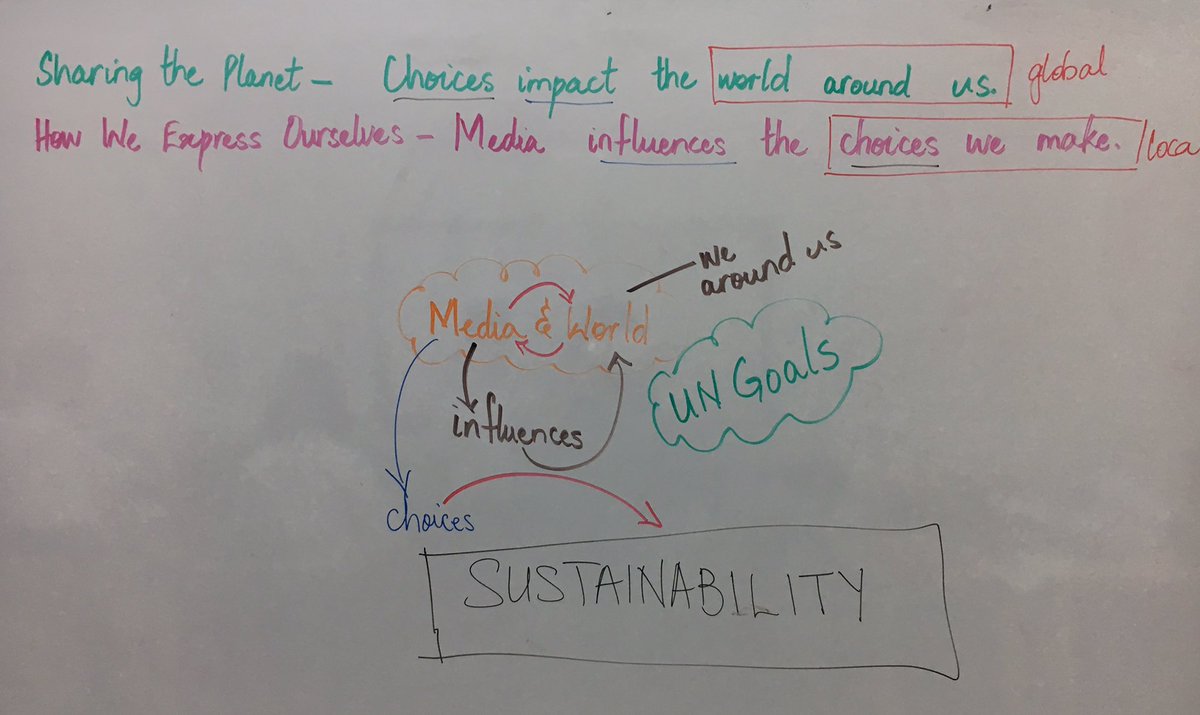 Sharing the Planet - Choices impact the world around us. global
How We Express Ourselves - Media influences the choices we make. /loca
we
around us
Media & World
UN Goals
influences
choices
SUSTAINABILITY